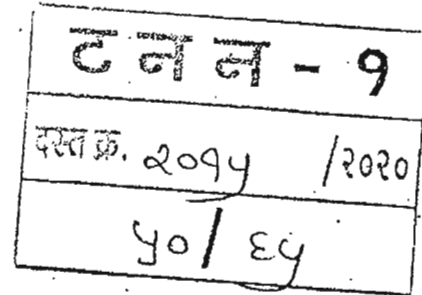 ट न न - १
दस्त क्र. २०१५ /२०२०
५०/ ६५